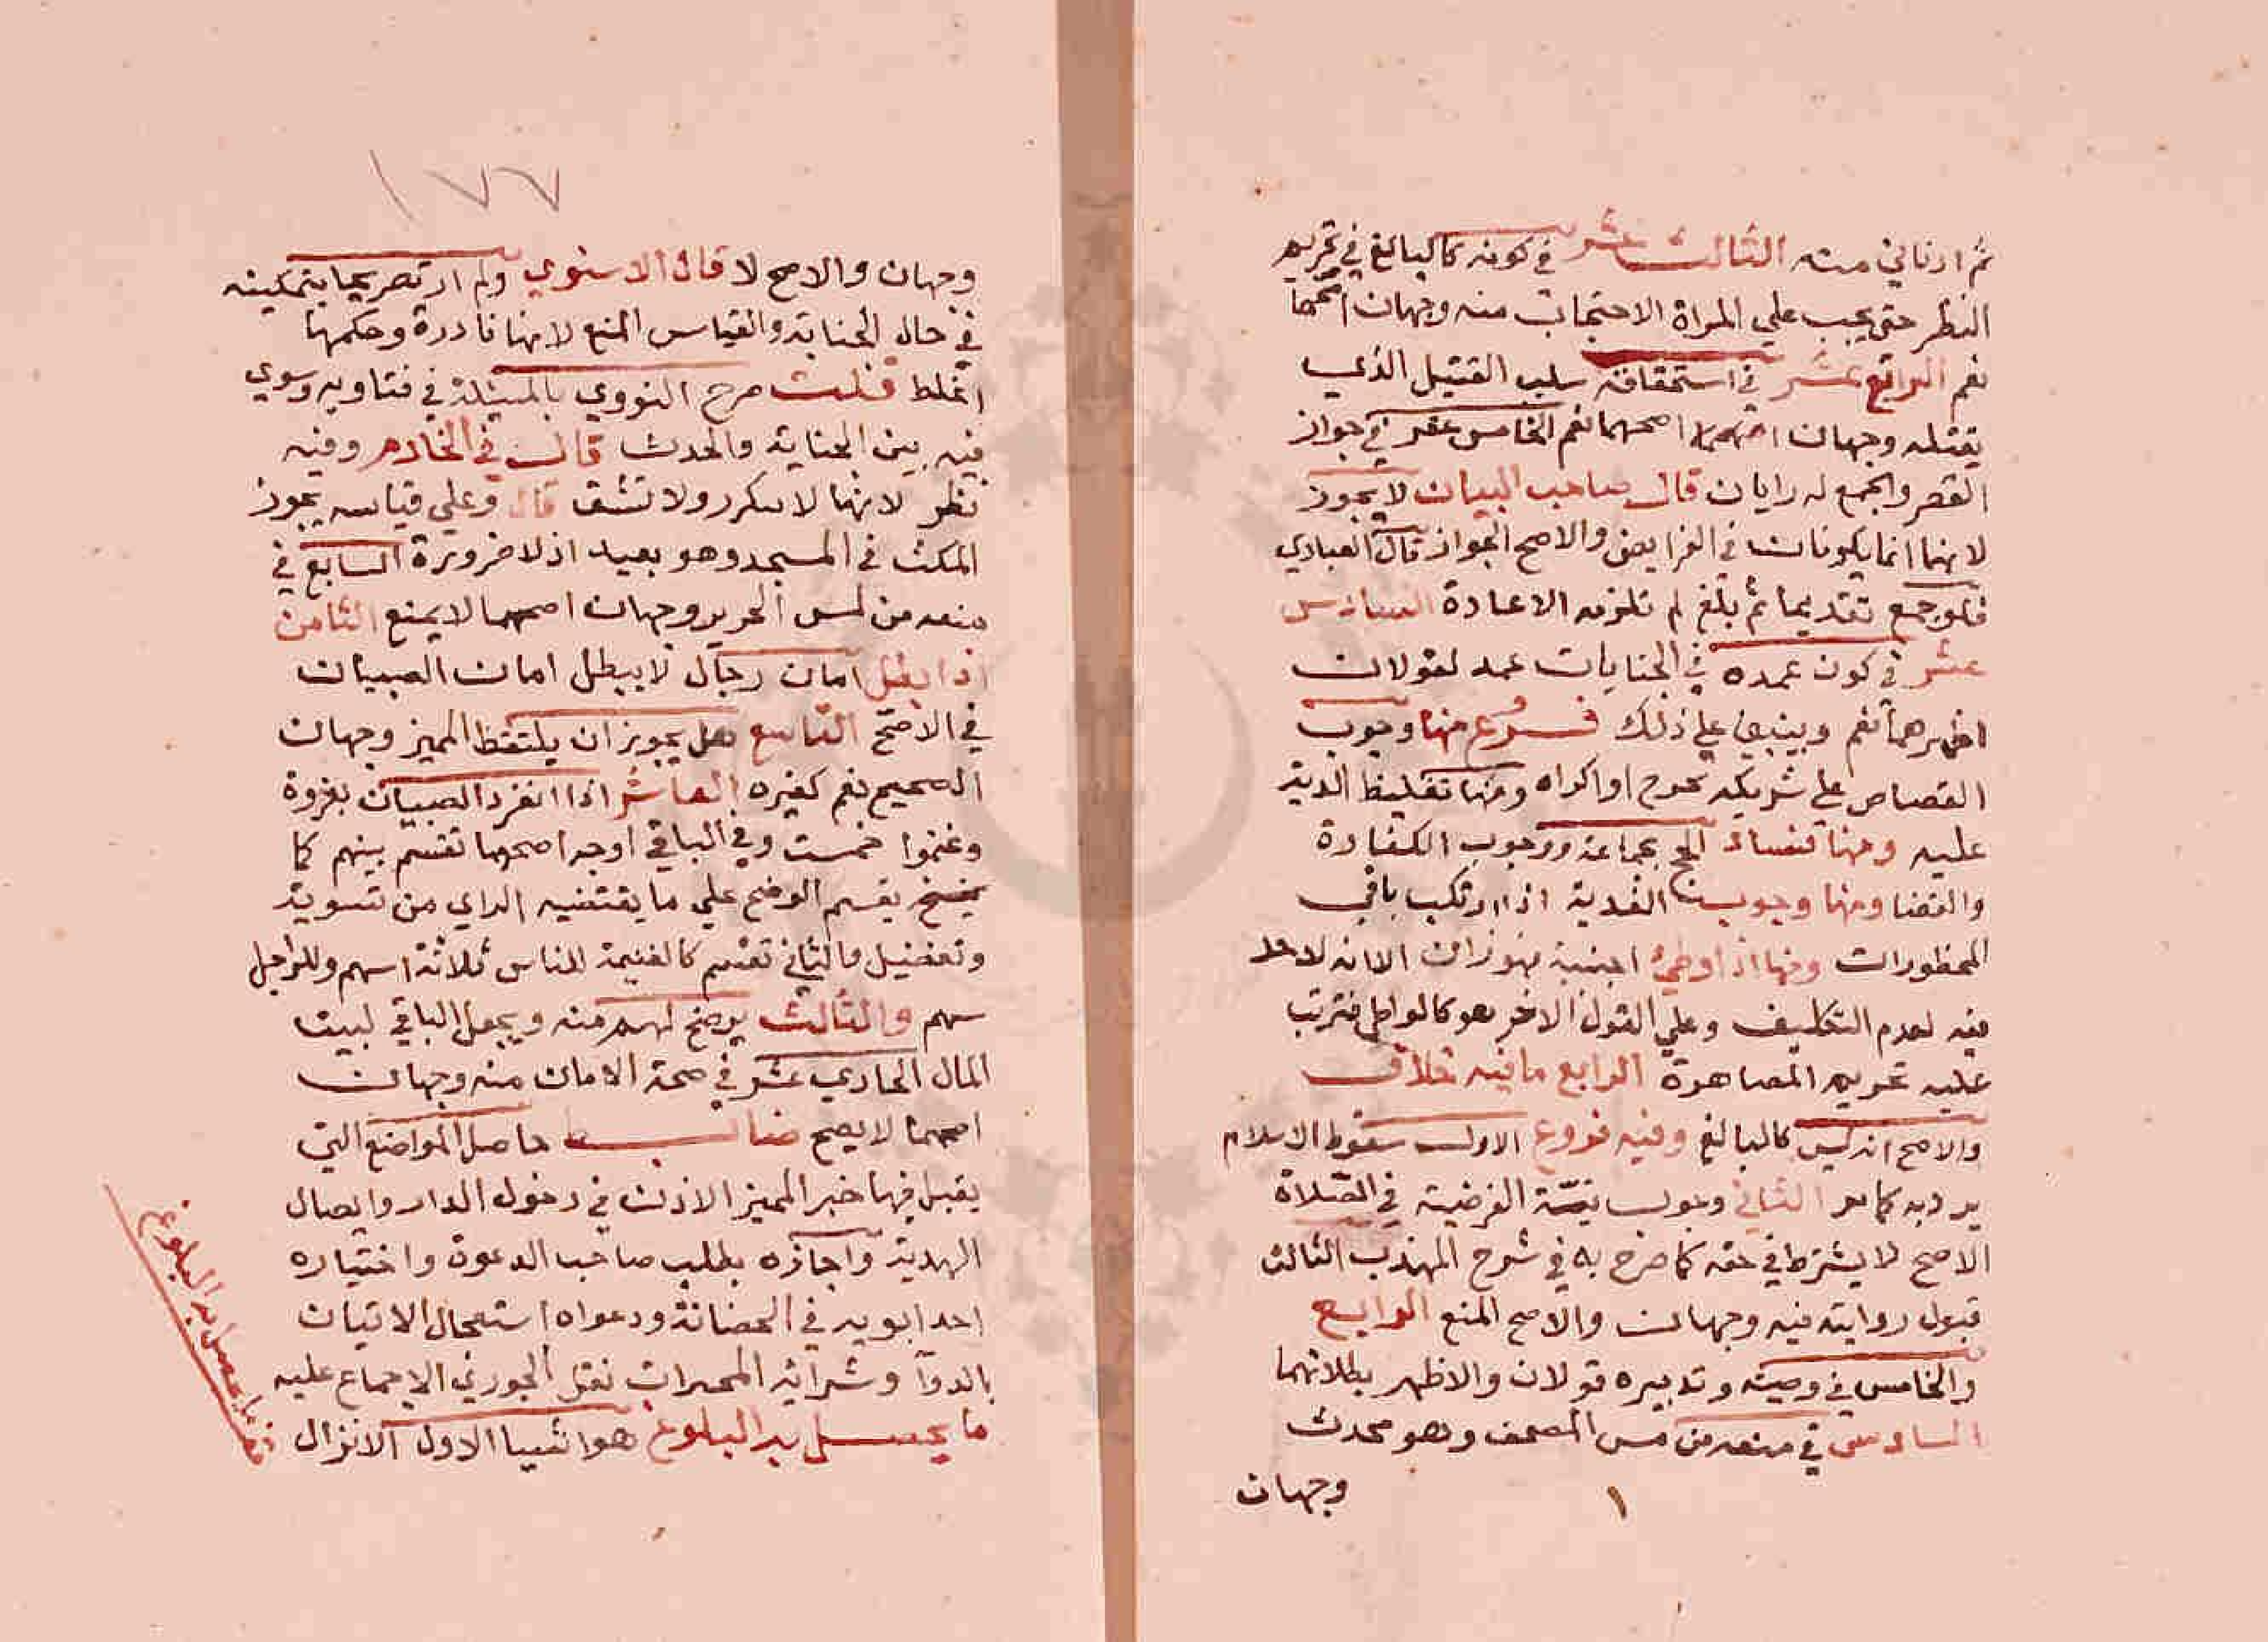 ثم ارتاني منه الثالث عشر في كونه كالبالغ في تحريم
النظر حتى يجب علي المراة الاحتجاب منه وجهان اصحهما
نعم الرابع عشر في استحقاقه سلب القتيل الذي
يقتله وجهان اصحهما نعم الخامس عشر في جواز
القصر والجمع له رايان قال صاحب البيان لا يجوز
لانهما انما يكونان في الفرايض والاصح الجواز قال العبادي
فلو جمع تقديما ثم بلغ لم تلزمه الاعادة السادس
عشر في كون عمده في الجنايات عمد لقولان
اظهرهما نعم وينبني علي ذلك فروع منها وجوب
القصاص علي شريكه بجرح او اكراه ومنها تغليظ الدية
عليه ومنها فساد الحج بجماعه ووجوب الكفارة
والقضا ومنها وجوب الفدية اذا ارتكب باقي
المحظورات ومنها اذا وطئ اجنبية فهو زان الا انه لا حد
فيه لعدم التكليف وعلي القول الاخر هو كالواطي فترتب
عليه تحريم المصاهرة الرابع ما فيه خلاف
والاصح انه ليس كالبالغ وفيه فروع الاول سقوط الاسلام
يرد به كما مر الثاني وجوب نية الفرضية في الصلاة
الاصح لا يشترط في حقه كما صرح به في شرح المهذب الثالث
قبول روايته فيه وجهان والاصح المنع الرابع
والخامس في وصيته وتدبيره قولان والاظهر بطلانهما
السادس في منعه من مس المصحف وهو محدث
وجهان
١
١٧٧
وجهان والاصح لا قال الاسنوي ولم ار تصريحا بتمكينه
في حال الجنابة والقياس المنع لانها نادرة وحكمها
اغلظ قلت صرح النووي بالمسئلة في فتاويه وسوي
فيه بين الجنابة والحدث قال في الخادم وفيه
نظر لانها لا تتكرر ولا تشق قال وعلي قياسه يجوز
المكث في المسجد وهو بعيد اذ لا ضرورة السابع في
منعه من لبس الحرير وجهان اصحهما لا يمنع الثامن
اذا بطل امان رجال لا يبطل امان الصبيان
في الاصح التاسع هل يجوز ان يلتقط المميز وجهان
الصحيح نعم كغيره العاشر اذا انفرد الصبيان بغزوة
وغنموا خمست وفي الباقي اوجه اصحهما تقسم بينهم كما
يقسم الرضخ علي ما يقتضيه الراي من تسوية
وتفضيل والثاني تقسم كالغنيمة للناس ثلاثة اسهم وللراجل
سهم والثالث يرضخ لهم منه ويجعل الباقي لبيت
المال الحادي عشر في صحة الامان منه وجهان
اصحهما لا يصح ضابط حاصل المواضع التي
يقبل فيها خبر المميز الاذن في دخول الدار وايصال
الهدية واجازه بطلب صاحب الدعوة واختياره
احد ابويه في الحضانة ودعواه استعجال الانبات
بالدوا وشرائه المحقرات نقل الجوري الاجماع عليه
ما يحصل به البلوغ هو اشيا الاول الانزال
ما يحصل به البلوغ